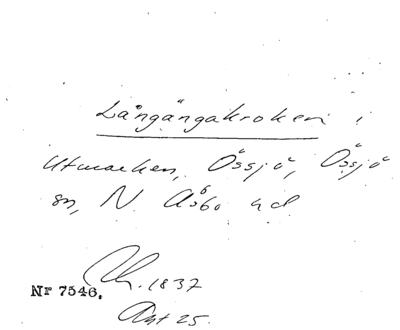 Långängakroken i
Utmarken, Össjö, Össjö
sn, N. Åsbo hd.
1837
Nr 7546.
Akt 25.